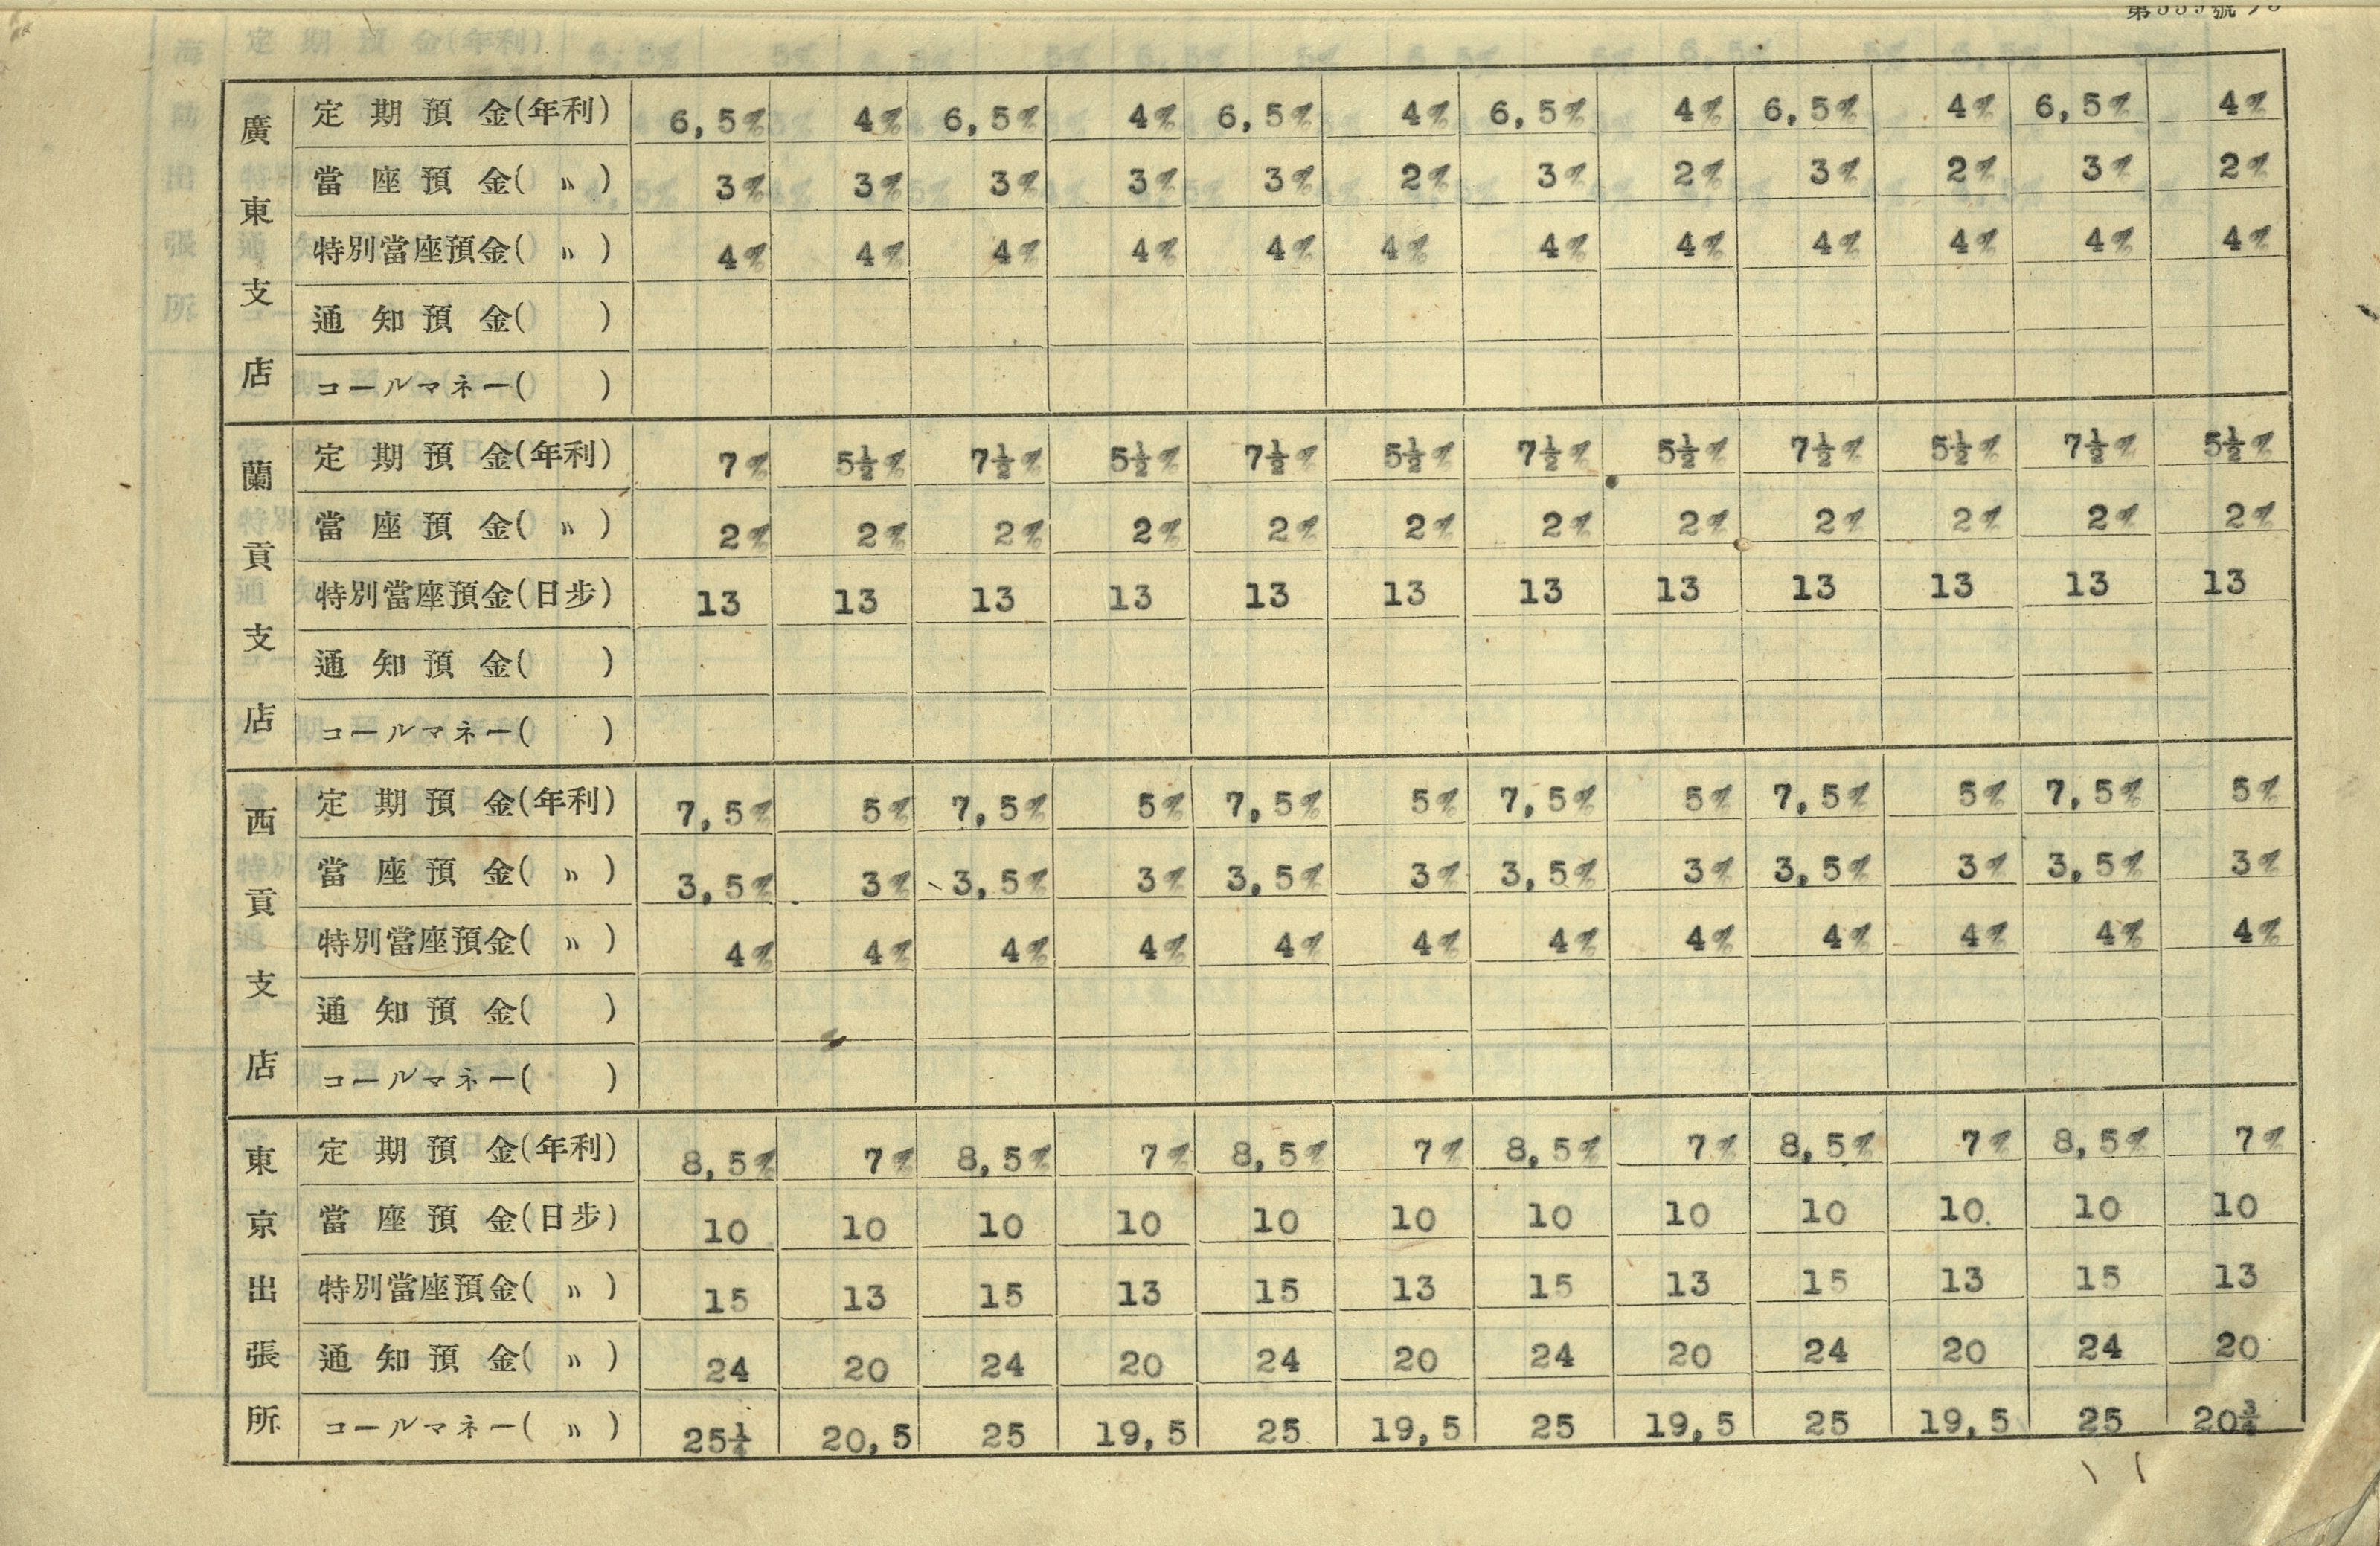 廣東支店
定期預金(年利) 6,5% 4% 6,5% 4% 6,5% 4% 6,5% 4% 6,5% 4% 6,5% 4%
當座預金( 〃 ) 3% 3% 3% 3% 3% 2% 3% 2% 3% 2% 3% 2%
特別當座預金( 〃 ) 4% 4% 4% 4% 4% 4% 4% 4% 4% 4% 4% 4%
通知預金( )
コールマネー( )
蘭貢支店
定期預金(年利) 7% 5½% 7½% 5½% 7½% 5½% 7½% 5½% 7½% 5½% 7½% 5½%
當座預金( 〃 ) 2% 2% 2% 2% 2% 2% 2% 2% 2% 2% 2% 2%
特別當座預金(日步) 13 13 13 13 13 13 13 13 13 13 13 13
通知預金( )
コールマネー( )
西貢支店
定期預金(年利) 7,5% 5% 7,5% 5% 7,5% 5% 7,5% 5% 7,5% 5% 7,5% 5%
當座預金( 〃 ) 3,5% 3% 3,5% 3% 3,5% 3% 3,5% 3% 3,5% 3% 3,5% 3%
特別當座預金( 〃 ) 4% 4% 4% 4% 4% 4% 4% 4% 4% 4% 4% 4%
通知預金( )
コールマネー( )
東京出張所
定期預金(年利) 8,5% 7% 8,5% 7% 8,5% 7% 8,5% 7% 8,5% 7% 8,5% 7%
當座預金(日步) 10 10 10 10 10 10 10 10 10 10 10 10
特別當座預金( 〃 ) 15 13 15 13 15 13 15 13 15 13 15 13
通知預金( 〃 ) 24 20 24 20 24 20 24 20 24 20 24 20
コールマネー( 〃 ) 25¼ 20,5 25 19,5 25 19,5 25 19,5 25 19,5 25 20¾